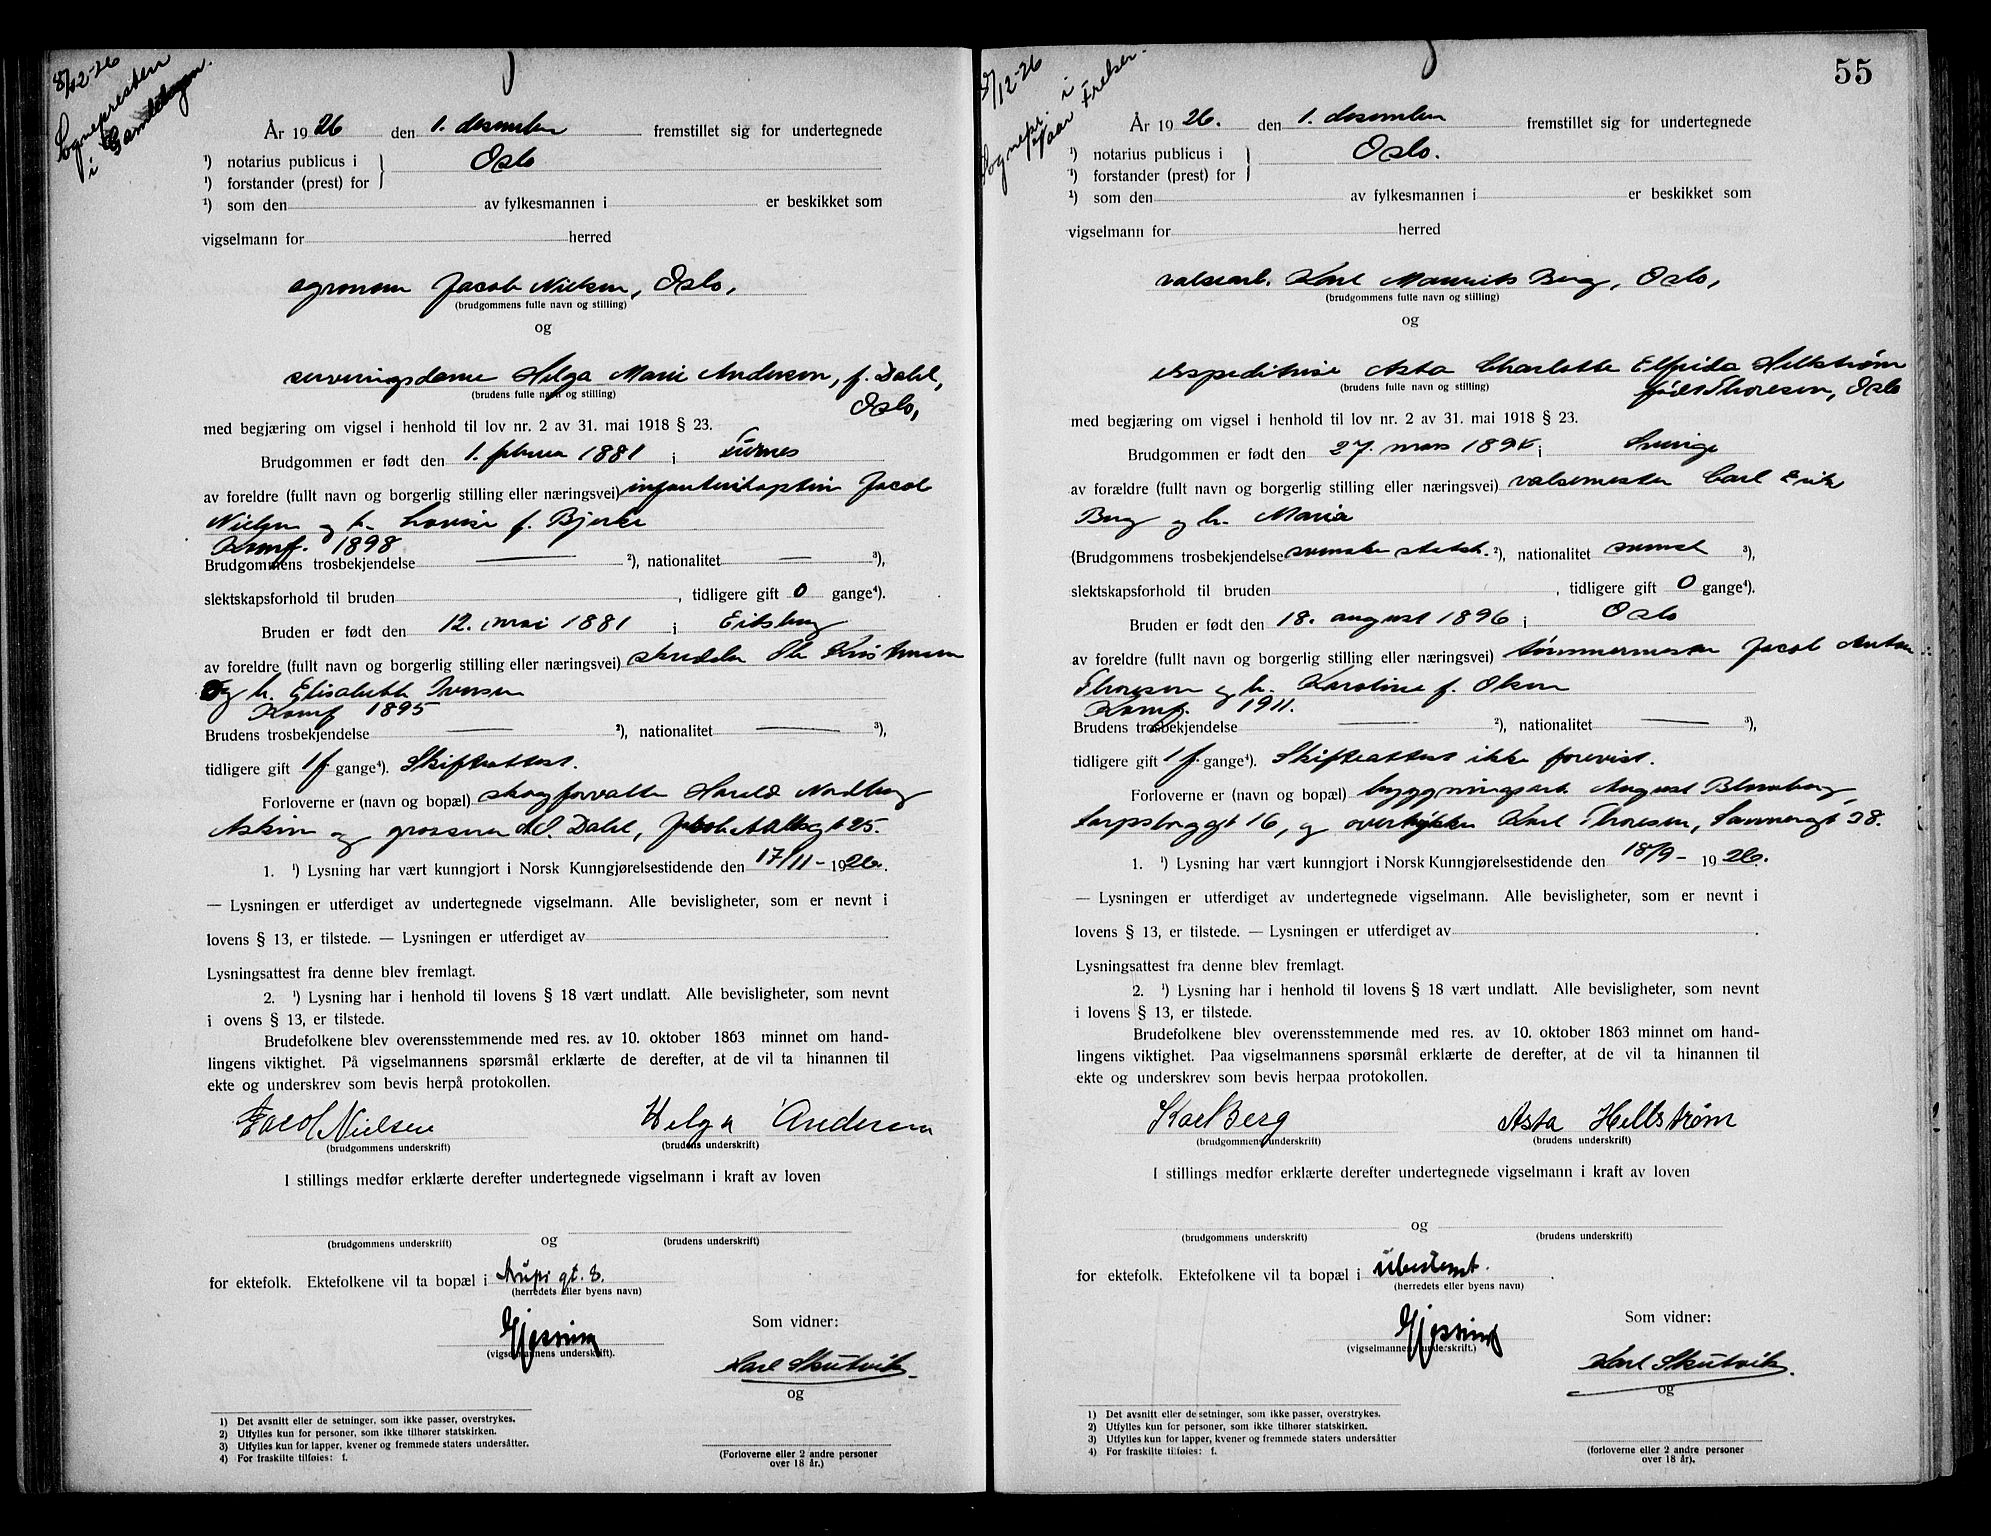 8/12-26
Sognepresten
i Gamlebyen.
År 1926 den 1. desember fremstillet sig for undertegnede
¹) notarius publicus i } Oslo
¹) forstander (prest) for
¹) som den av fylkesmannen i er beskikket som
vigselmann for herred
agronom Jacob Nielsen, Oslo,
(brudgommens fulle navn og stilling)
og
serveringsdame Helga Marie Andersen, f. Dahl,
(brudens fulle navn og stilling)
Oslo,
med begjæring om vigsel i henhold til lov nr. 2 av 31. mai 1918 § 23.
Brudgommen er født den 1. februar 1881 i Furnes
av foreldre (fullt navn og borgerlig stilling eller næringsvei) infanterikaptein Jacob
Nielsen og h. Lovise f. Bjerke
Konf. 1898
Brudgommens trosbekjendelse — ²), nationalitet — ³),
slektskapsforhold til bruden , tidligere gift 0 gange⁴).
Bruden er født den 12. mai 1881 i Eidsberg
av foreldre (fullt navn og borgerlig stilling eller næringsvei) skredder Ole Kristiansen
og h. Elisabeth Iversen
Konf 1895
Brudens trosbekjendelse — ²), nationalitet — ³),
tidligere gift 1 f. gange⁴). Skifteattest.
Forloverne er (navn og bopæl) skogforvalter Harald Nordberg
Askim og grosserer Dahl, Jacob Aallsgt 25.
1. ¹) Lysning har vært kunngjort i Norsk Kunngjørelsestidende den 17/11 - 1926.
— Lysningen er utferdiget av undertegnede vigselmann. Alle bevisligheter, som er nevnt i
lovens § 13, er tilstede. — Lysningen er utferdiget av
Lysningsattest fra denne blev fremlagt.
2. ¹) Lysning har i henhold til lovens § 18 vært undlatt. Alle bevisligheter, som nevnt
i ovens § 13, er tilstede.
Brudefolkene blev overensstemmende med res. av 10. oktober 1863 minnet om hand-
lingens viktighet. På vigselmannens spørsmål erklærte de derefter, at de vil ta hinannen til
ekte og underskrev som bevis herpå protokollen.
Jacob Nielsen Helga Andersen
(brudgommens underskrift) (brudens underskrift)
I stillings medfør erklærte derefter undertegnede vigselmann i kraft av loven
og
(brudgommens underskrift) (brudens underskrift)
for ektefolk. Ektefolkene vil ta bopæl i Arups gt. 8.
(herredets eller byens navn)
Gjessing
(vigselmannens underskrift).
Som vidner:
Karl Skutvik.
og
1) Det avsnitt eller de setninger, som ikke passer, overstrykes.
2) Utfylles kun for personer, som ikke tilhører statskirken.
3) Utfylles kun for lapper, kvener og fremmede staters undersåtter.
4) For fraskilte tilføies: f.
(Forloverne eller 2 andre personer
over 18 år.)
55
8/12-26
Sognepr. i
Vaar Frelser.
År 1926. den 1. desember fremstillet sig for undertegnede
¹) notarius publicus i } Oslo.
¹) forstander (prest) for
¹) som den av fylkesmannen i er beskikket som
vigselmann for herred
valsearb. Karl Maurits Berg, Oslo,
(brudgommens fulle navn og stilling)
og
ekspeditrise Asta Charlotte Elfrida Hellstrøm
(brudens fulle navn og stilling)
født Thoresen, Oslo
med begjæring om vigsel i henhold til lov nr. 2 av 31. mai 1918 § 23.
Brudgommen er født den 27. mars i Sverige
av forældre (fullt navn og borgerlig stilling eller næringsvei) valsemester Carl Erik
Berg og h. Maria
(Brudgommens trosbekjendelse svenske statsk. ²), nationalitet svensk ³),
slektskapsforhold til bruden , tidligere gift 0 gange⁴).
Bruden er født den 18. august 1896 i Oslo
av foreldre (fullt navn og borgerlig stilling eller næringsvei) tømmermester Jacob Anton
Thoresen og h. Karoline f. Olsen
Konf. 1911.
Brudens trosbekjendelse — ²), nationalitet — ³),
tidligere gift 1 f. gange⁴). Skifteattest ikke forevist.
Forloverne er (navn og bopæl) bygningsarb August Blomberg,
Sarpsborggt 16, og Karl Thoresen, Sannergt 38.
1. ¹) Lysning har vært kunngjort i Norsk Kunngjørelsestidende den 18/9 - 1926.
— Lysningen er utferdiget av undertegnede vigselmann. Alle bevisligheter, som er nevnt i
lovens § 13, er tilstede. — Lysningen er utferdiget av
Lysningsattest fra denne blev fremlagt.
2. ¹) Lysning har i henhold til lovens § 18 vært undlatt. Alle bevisligheter, som nevnt
i lovens § 13, er tilstede.
Brudefolkene blev overensstemmende med res. av 10. oktober 1863 minnet om hand-
lingens viktighet. Paa vigselmannens spørsmål erklærte de derefter, at de vil ta hinannen til
ekte og underskrev som bevis herpaa protokollen.
Karl Berg Asta Hellstrøm
(brudgommens underskrift) (brudens underskrift)
I stillings medfør erklærte derefter undertegnede vigselmann i kraft av loven
og
(brudgommens underskrift) (brudens underskrift)
for ektefolk. Ektefolkene vil ta bopæl i Ubestemt.
(herredets eller byens navn)
Gjessing
(vigselmannens underskrift.)
Som vidner:
Karl Skutvik.
og
1) Det avsnitt eller de setninger, som ikke passer, overstrykes.
2) Utfylles kun for personer, som ikke tilhører statskirken.
3) Utfylles kun for lapper, kvener og fremmede staters undersåtter
4) For fraskilte tilføies: f.
(forloverne eller 2 andre personer
over 18 år).